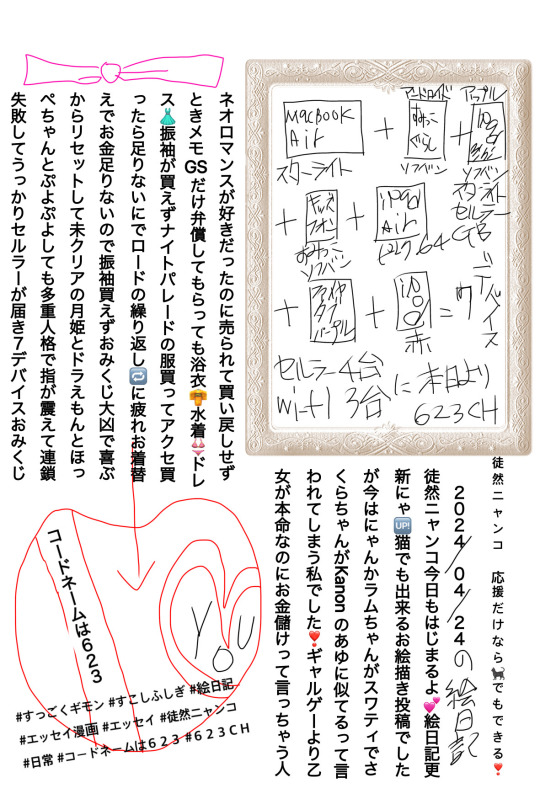 徒然ニャンコ 応援だけなら🐈‍⬛でもできる❣️
2024/04/24の絵日記
徒然ニャンコ今日もはじまるよ💕絵日記更
新にゃ🆙猫でも出来るお絵描き投稿でした
が今はにゃんかラムちゃんがスワティでさ
くらちゃんがKanonのあゆに似てるって言
われてしまう私でした❣️ギャルゲーより乙
女が本命なのにお金儲けって言っちゃう人
MacBOOK
Air
スターライト
+
アンドロイド
すみっこ
ぐらし
ソフバン
+
アップル
ソフバン
スターライト
セルラー
GB
+
キッズ
フォン
すみっこ
ソフバン
+
iPad
Air
64
+
パープル
+
iPod
赤
=
7
デバイス
セルラー4台
Wi-Fi 3台
に本日より
623CH
ネオロマンスが好きだったのに売られて買い戻しせず
ときメモGSだけ弁償してもらっても浴衣👘水着👙ドレ
ス👗振袖が買えずナイトパレードの服買ってアクセ買
ったら足りないにでロードの繰り返し🔁に疲れお着替
えでお金足りないので振袖買えずおみくじ大凶で喜ぶ
からリセットして未クリアの月姫とドラえもんとほっ
ぺちゃんとぷよぷよしても多重人格で指が震えて連鎖
失敗してうっかりセルラーが届き7デバイスおみくじ
コードネームは623
YOU
#すっごくギモン #すこしふしぎ #絵日記
#エッセイ漫画 #エッセイ #徒然ニャンコ
#日常 #コードネームは623 #623CH